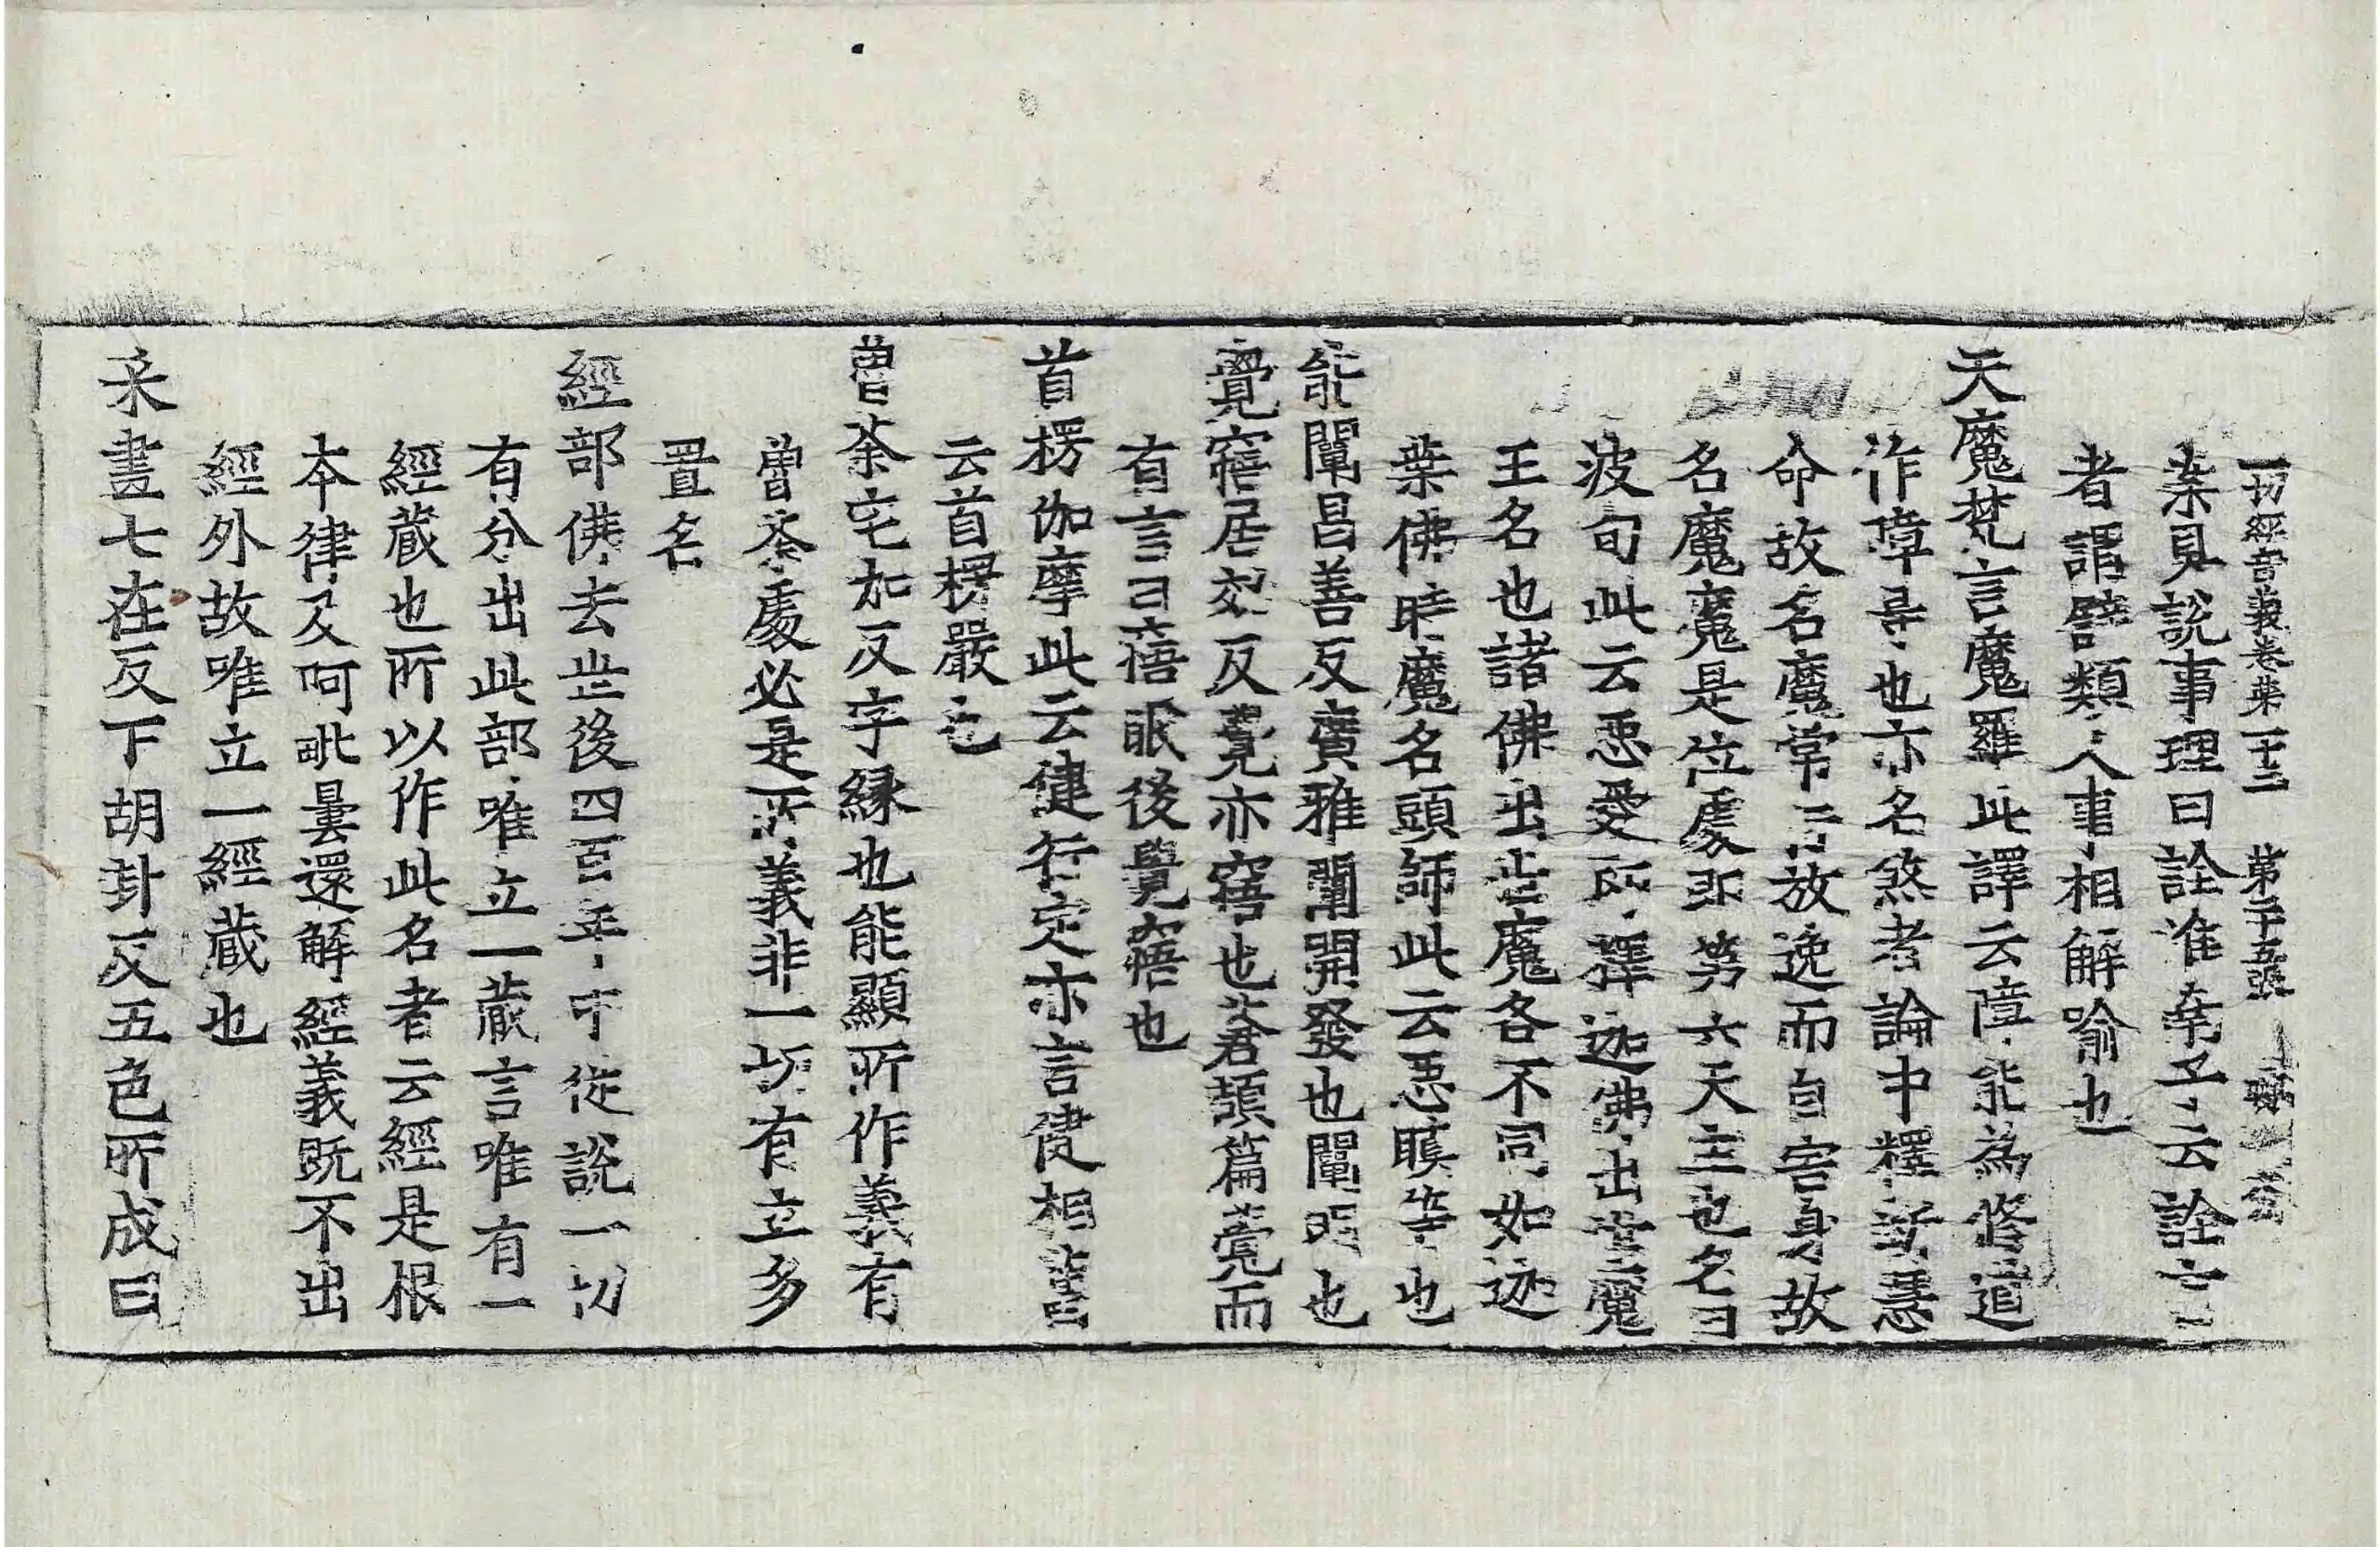 一切經音義卷第二十三 第二十五張
案具說事理曰詮淮南子云詮言
者謂譬類人事相解喻也
天魔梵言魔羅此譯云障能為修道
作障㝵也亦名煞者論中釋斷慧
命故名魔常行放逸而自害身故
名魔魔是位處即第六天主也名曰
波旬此云惡愛即釋迦佛出世魔
王名也諸佛出世魔各不同如迦
葉佛時魔名頭師此云惡瞋等也
能闡昌善反廣雅闡開發也闡明也
覺寤居効反覺亦寤也蒼頡篇覺而
有言曰寤眠後覺寤也
首楞伽摩此云健行定亦言健相舊
云首楞嚴也
曾荼宅加反字緣也能顯所作義有
曾荼處必是所義非一切有立多
置名
經部佛去世後四百年中從說一切
有分出此部唯立一藏言唯有一
經藏也所以作此名者云經是根
本律及阿毗曇還解經義既不出
經外故唯立一經藏也
采畫七在反下胡卦反五色所成曰